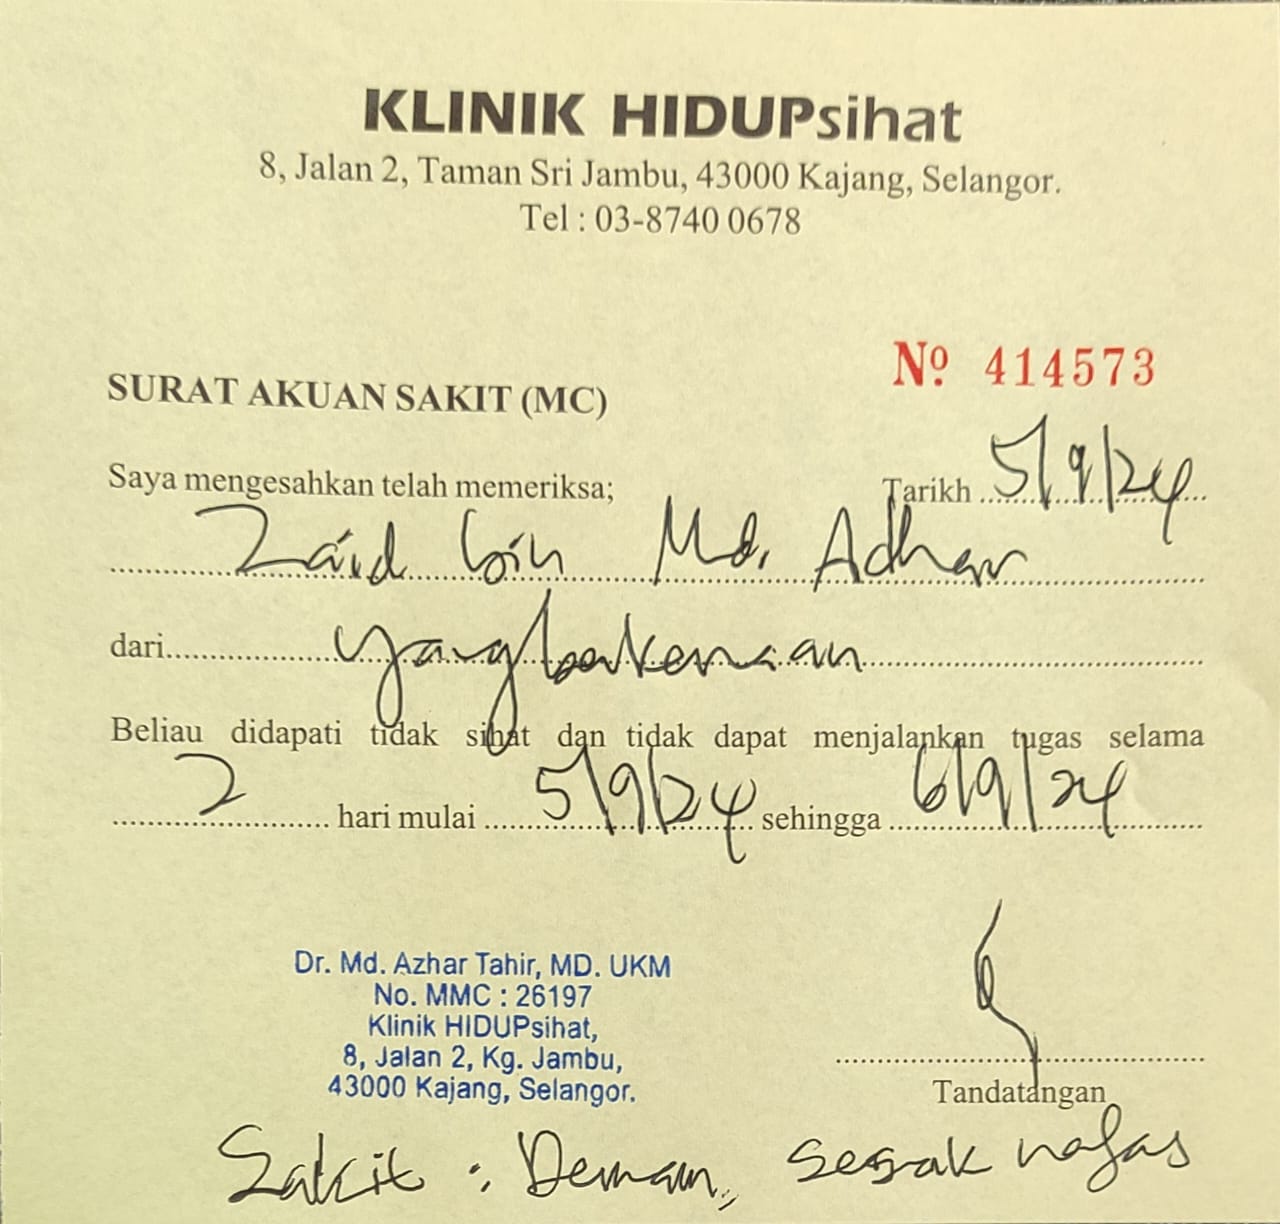 KLINIK HIDUPsihat
8, Jalan 2, Taman Sri Jambu, 43000 Kajang, Selangor.
Tel : 03-8740 0678
Nº 414573
SURAT AKUAN SAKIT (MC)
Saya mengesahkan telah memeriksa; Tarikh 5/9/24
Zaid bin Md. Adhan
dari yang berkenaan
Beliau didapati tidak sihat dan tidak dapat menjalankan tugas selama
2 hari mulai 5/9/24 sehingga 6/9/24
Dr. Md. Azhar Tahir, MD. UKM
No. MMC : 26197
Klinik HIDUPsihat,
8, Jalan 2, Kg. Jambu,
43000 Kajang, Selangor.
Tandatangan
Sakit : Demam, sesak nafas